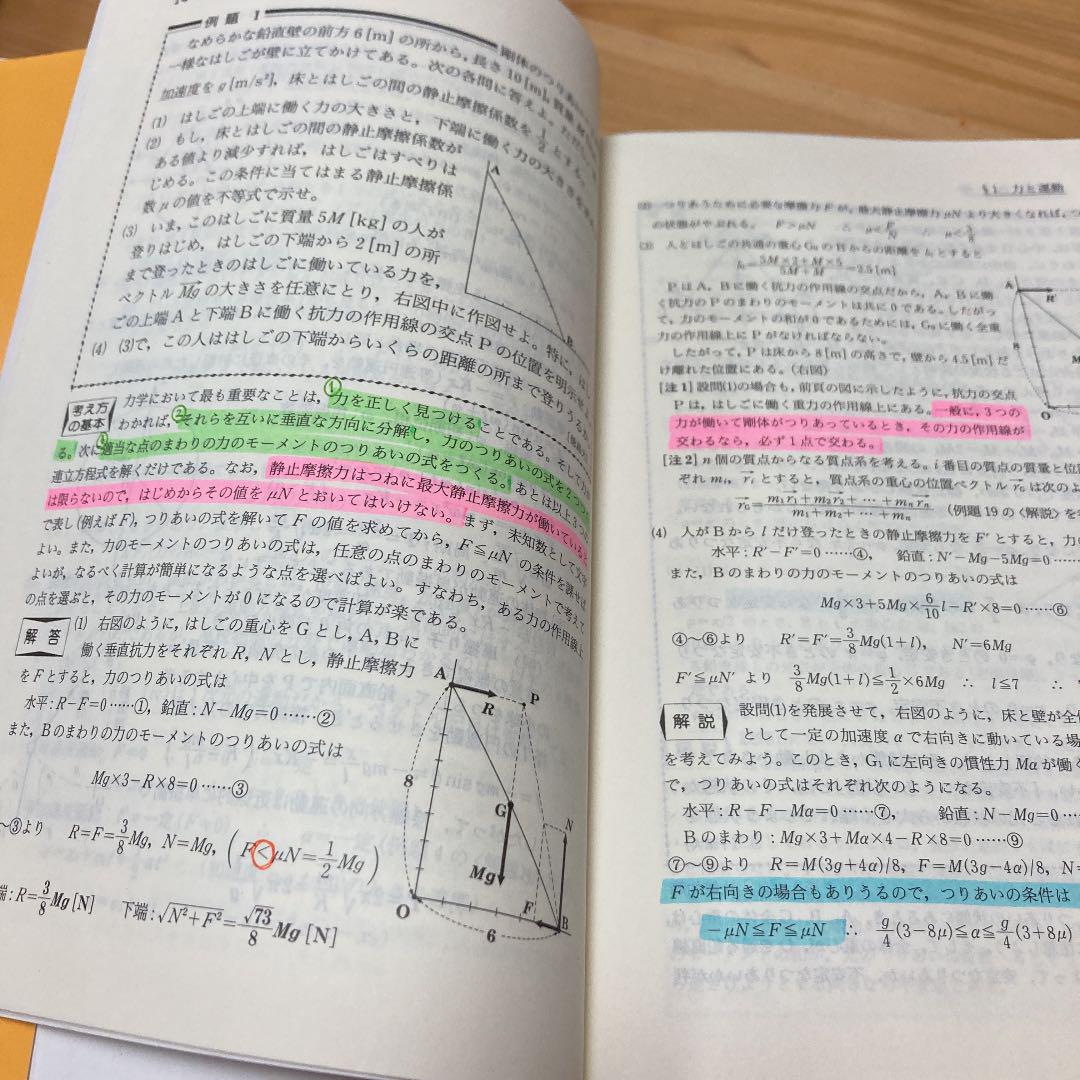 例題 1
剛体のつりあい
なめらかな鉛直壁の前方6[m]の所から,長さ10[m],質量
一様なはしごが壁に立てかけてある。次の各問に答えよ。ただし
加速度をg[m/s²],床とはしごの間の静止摩擦係数を1/2とする。
(1) はしごの上端に働く力の大きさと,下端に働く力の大きさを
(2) もし,床とはしごの間の静止摩擦係数が
ある値より減少すれば,はしごはすべりは
じめる。この条件に当てはまる静止摩擦係
数μの値を不等式で示せ。
(3) いま,このはしごに質量5M[kg]の人が
登りはじめ,はしごの下端から2[m]の所
まで登ったときのはしごに働いている力を,
ベクトルMg→の大きさを任意にとり,右図中に作図せよ。特に,は
ごの上端Aと下端Bに働く抗力の作用線の交点Pの位置を明示せよ
(4) (3)で,この人ははしごの下端からいくらの距離の所まで登りうるか
A
B
考え方の基本
力学において最も重要なことは,①力を正しく見つけることである。そして力が
わかれば,②それらを互いに垂直な方向に分解し,力のつりあいの式を2つつく
る。次に適当な点のまわりの力のモーメントのつりあいの式をつくる。あとは以上3つの
連立方程式を解くだけである。なお,静止摩擦力はつねに最大静止摩擦力が働いていると
は限らないので,はじめからその値をμNとおいてはいけない。まず,未知数として文字
で表し(例えばF),つりあいの式を解いてFの値を求めてから,F≦μNの条件を課せば
よい。また,力のモーメントのつりあいの式は,任意の点のまわりのモーメントで考えて
よいが,なるべく計算が簡単になるような点を選べばよい。すなわち,ある力の作用線上
の点を選ぶと,その力のモーメントが0になるので計算が楽である。
解答
(1) 右図のように,はしごの重心をGとし,A,Bに
働く垂直抗力をそれぞれR,Nとし,静止摩擦力
をFとすると,力のつりあいの式は
水平:R−F=0……①,鉛直:N−Mg=0……②
また,Bのまわりの力のモーメントのつりあいの式は
Mg×3−R×8=0……③
～③より R=F=3/8Mg, N=Mg, (F<μN=1/2Mg)
端:R=3/8Mg[N] 下端:√N²+F²=√73/8Mg[N]
A
R
P
8
G
N
Mg
O
F
B
6
§1 力と運動
(2) つりあうために必要な摩擦力Fが,最大静止摩擦力μNより大きくなれば,つ
の状態がやぶれる。 F>μN ∴ μ<F/N ∴ μ<3/8
(3) 人とはしごの共通の重心G₀のBからの距離をl₀とすると
l₀=5M×2+M×5/5M+M=2.5[m]
PはA,Bに働く抗力の作用線の交点だから,A,Bに働
く抗力のPのまわりのモーメントは共に0である。したがっ
て,力のモーメントの和が0であるためには,G₀に働く全重
力の作用線上にPがなければならない。
したがって,Pは床から8[m]の高さで,壁から4.5[m]だ
け離れた位置にある。(右図)
A
R
O
[注1] 設問(1)の場合も,前頁の図に示したように,抗力の交点
Pは,はしごに働く重力の作用線上にある。一般に,3つの
力が働いて剛体がつりあっているとき,その力の作用線が
交わるなら,必ず1点で交わる。
[注2] n個の質点からなる質点系を考える。i番目の質点の質量と位
ぞれmᵢ, rᵢ→とすると,質点系の重心の位置ベクトルr₀→は次のよ
r₀→=m₁r₁→+m₂r₂→+…+mₙrₙ→/m₁+m₂+…+mₙ (例題19の〈解説〉を
(4) 人がBからlだけ登ったときの静止摩擦力をF′とすると,力の
水平:R′−F′=0……④, 鉛直:N′−Mg−5Mg=0……
また,Bのまわりの力のモーメントのつりあいの式は
Mg×3+5Mg×6/10l−R′×8=0……⑥
④～⑥より R′=F′=3/8Mg(1+l), N′=6Mg
F′≦μN′より 3/8Mg(1+l)≦1/2×6Mg ∴ l≦7
解説
設問(1)を発展させて,右図のように,床と壁が全体
として一定の加速度αで右向きに動いている場
を考えてみよう。このとき,G₁に左向きの慣性力Mαが働く
で,つりあいの式はそれぞれ次のようになる。
水平:R−F−Mα=0……⑦, 鉛直:N−Mg=0……
Bのまわり:Mg×3+Mα×4−R×8=0……⑨
⑦～⑨より R=M(3g+4α)/8, F=M(3g−4α)/8, N=
Fが右向きの場合もありうるので,つりあいの条件は
−μN≦F≦μN ∴ g/4(3−8μ)≦α≦g/4(3+8μ)